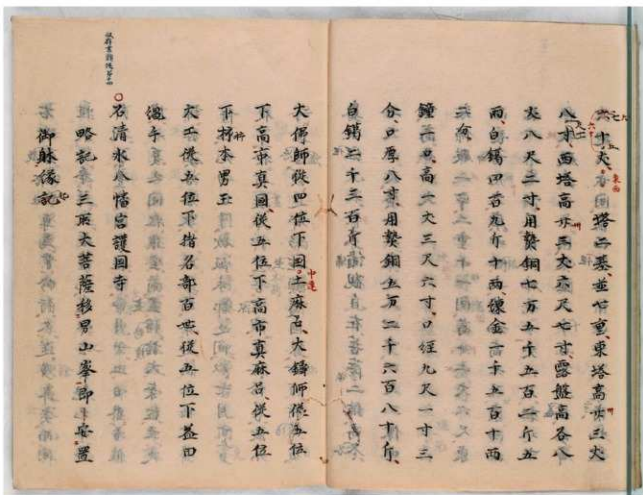 塔二基並七重東塔高廿三丈
八寸西塔高廿三丈六尺七寸露盤高各八
丈八尺二寸用熟銅七万五千五百二斤五
兩白錫四百九斤十兩練金一千五百十兩
二分
鐘一口高一丈三尺六寸口徑九尺一寸三
分口厚八寸用熟銅五万二千六百八十斤
白錫二千三百斤
大佛師從四位下國公麻呂大鑄師從五位
下高市真國從五位下高市真麻呂從五位
下柿本男玉
大工從五位下猪名部百世從五位下益田
繩手
○石清水八幡宮護國寺
略記三所大菩薩移男山峯即奉安置
御躰縁記